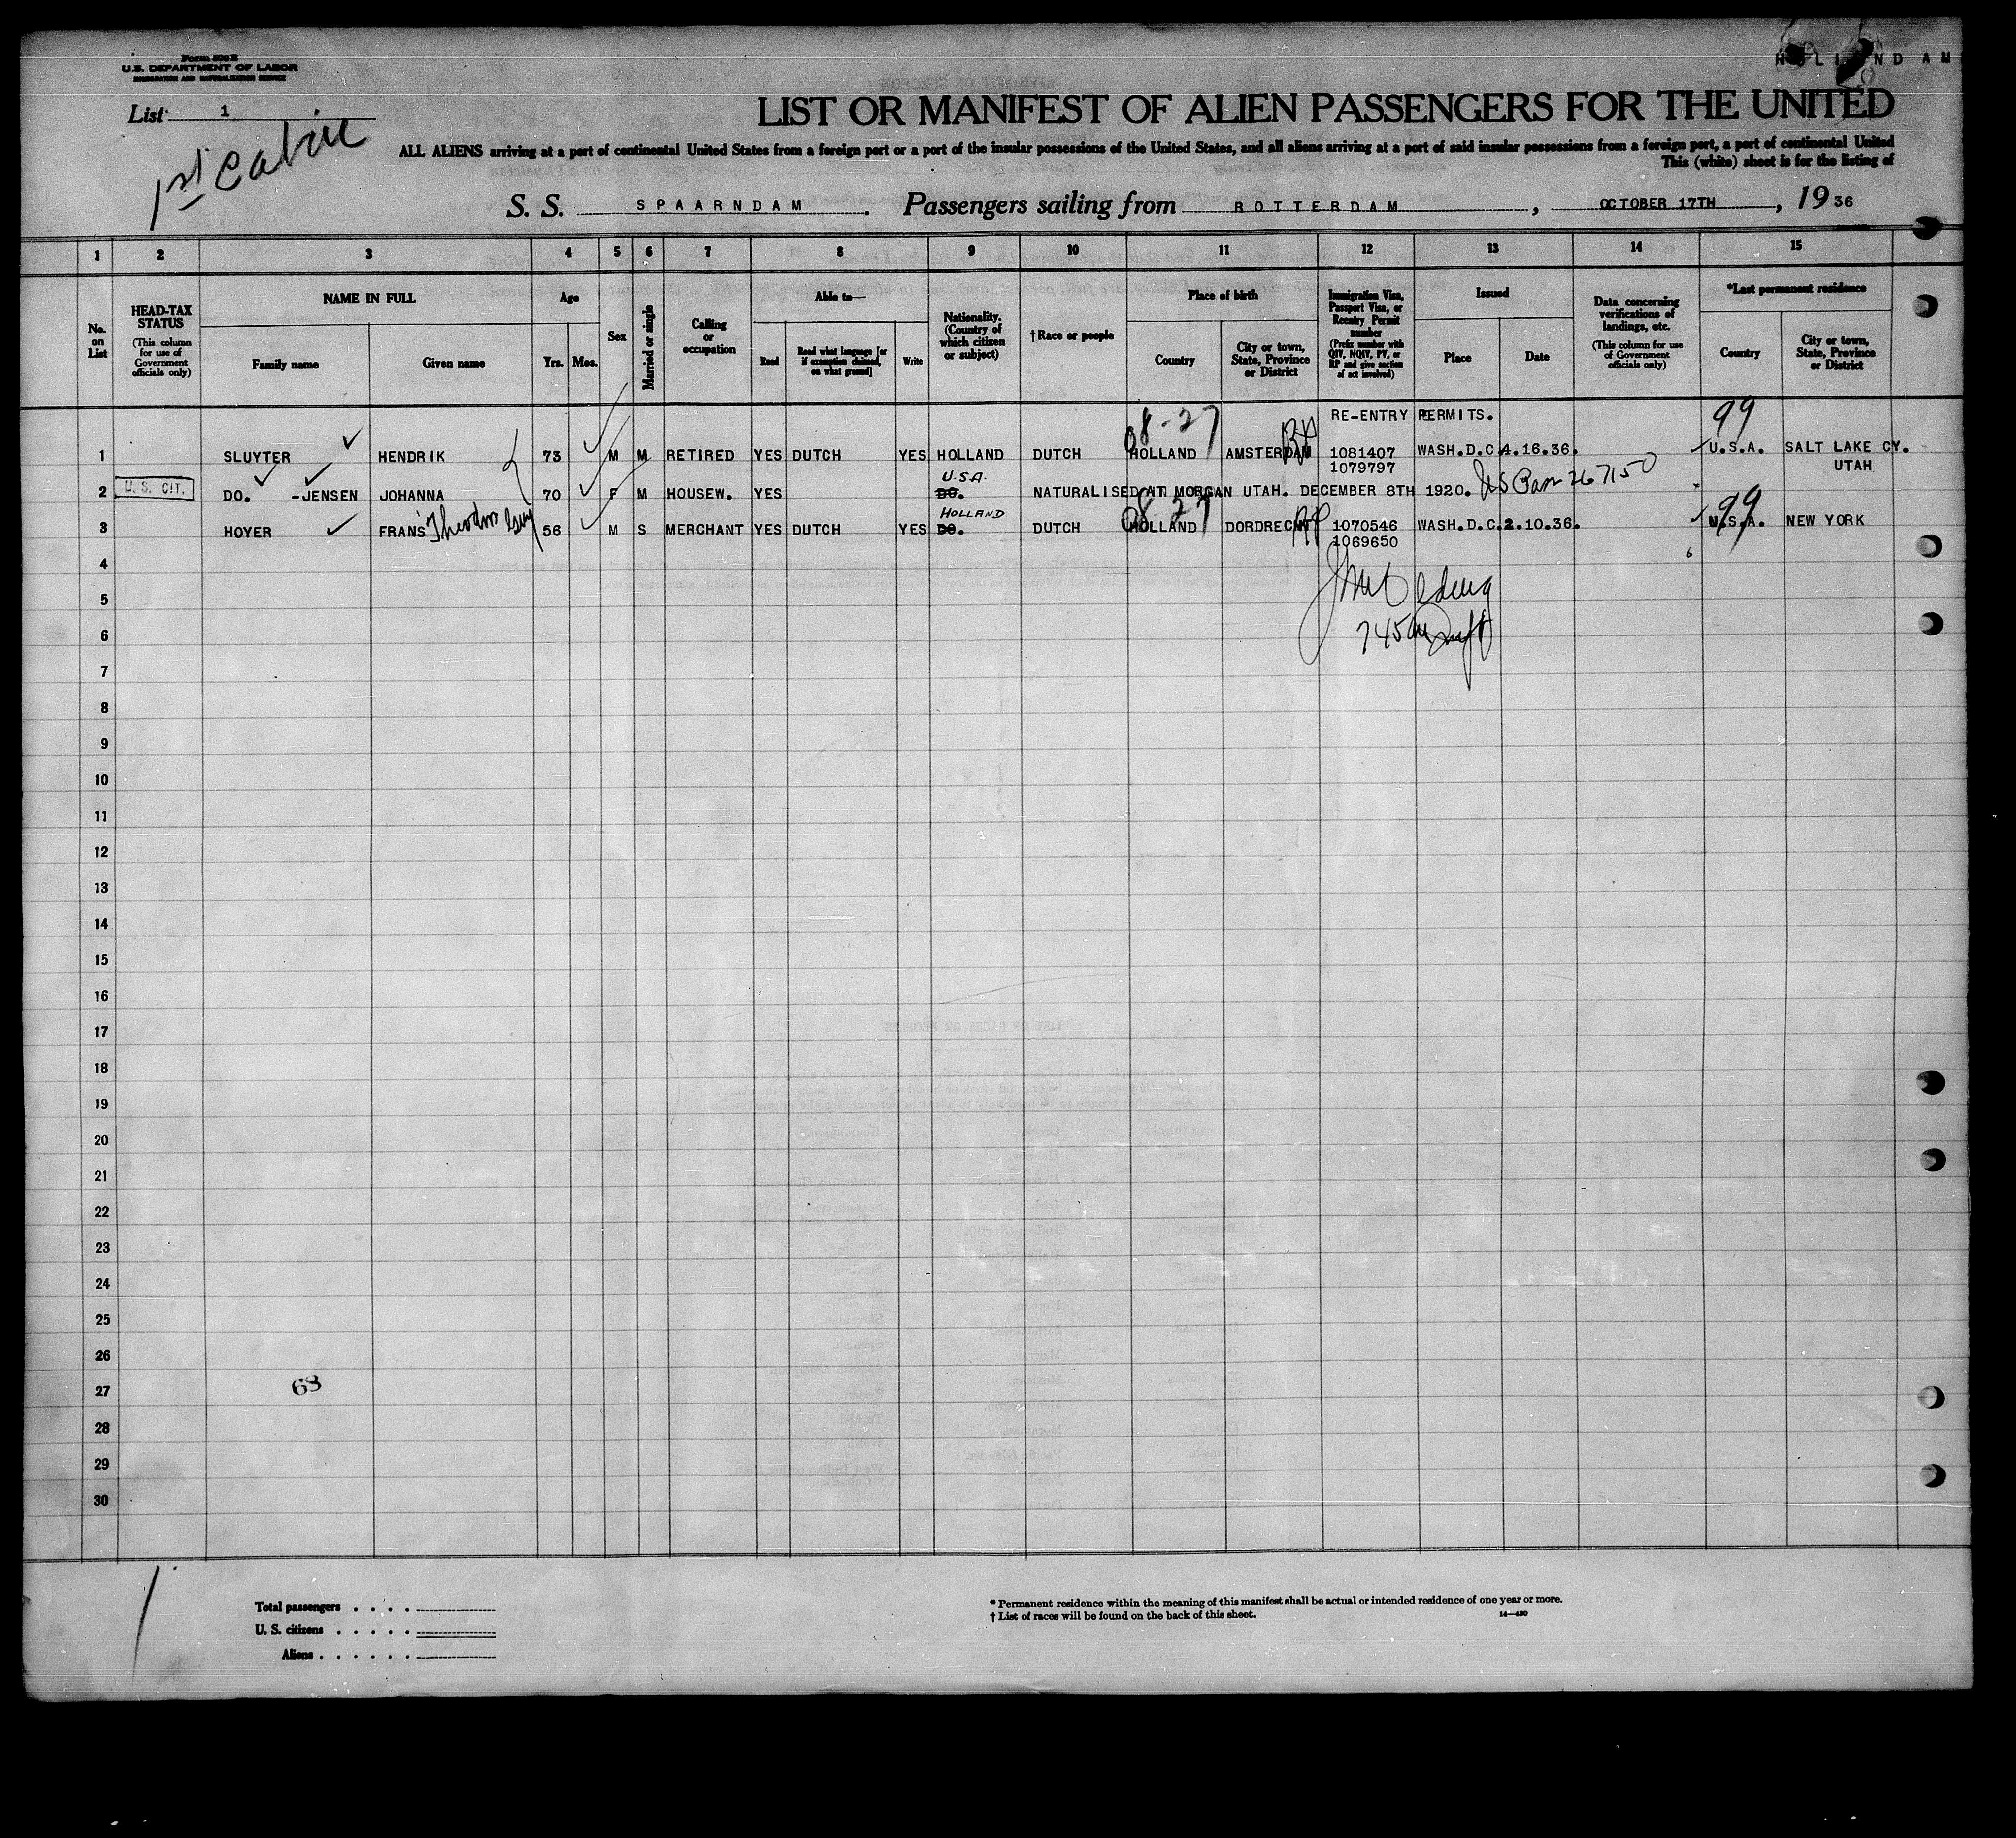 Form 500 B
U.S. DEPARTMENT OF LABOR
IMMIGRATION AND NATURALIZATION SERVICE
HOLLAND AM
List 1
1st Cabin
LIST OR MANIFEST OF ALIEN PASSENGERS FOR THE UNITED
ALL ALIENS arriving at a port of continental United States from a foreign port or a port of the insular possessions of the United States, and all aliens arriving at a port of said insular possessions from a foreign port, a port of continental United
This (white) sheet is for the listing of
S. S. SPAARNDAM. Passengers sailing from ROTTERDAM, OCTOBER 17TH, 1936
1 2 3 4 5 6 7 8 9 10 11 12 13 14 15
No. on List
HEAD-TAX STATUS
(This column for use of Government officials only)
NAME IN FULL
Family name
Given name
Age
Yrs. Mos.
Sex
Married or single
Calling or occupation
Able to—
Read
Read what language [or if exemption claimed, on what ground]
Write
Nationality. (Country of which citizen or subject)
†Race or people
Place of birth
Country
City or town, State, Province or District
Immigration Visa, Passport Visa, or Reentry Permit number
(Prefix number with QIV, NQIV, PV, or RP and give section of act involved)
Issued
Place
Date
Data concerning verifications of landings, etc.
(This column for use of Government officials only)
*Last permanent residence
Country
City or town, State, Province or District
RE-ENTRY PERMITS.
08-27 99
1 SLUYTER HENDRIK 73 M M RETIRED YES DUTCH YES HOLLAND DUTCH HOLLAND AMSTERDAM RP 1081407 WASH.D.C. 4.16.36. U.S.A. SALT LAKE CY.
1079797 UTAH
U.S.A.
2 U. S. CIT. DO. -JENSEN JOHANNA 70 F M HOUSEW. YES DO. NATURALISED AT MORGAN UTAH. DECEMBER 8TH 1920. US Pass 267150
HOLLAND 08 27 99
3 HOYER FRANS Theodor 56 M S MERCHANT YES DUTCH YES DO. DUTCH HOLLAND DORDRECHT RP 1070546 WASH.D.C. 2.10.36. U.S.A. NEW YORK
1069650
4
5
6
7
8
9
10
11
12
13
14
15
16
17
18
19
20
21
22
23
24
25
26
27 63
28
29
30
Total passengers . . . .
U. S. citizens . . . . .
Aliens . . . . . .
* Permanent residence within the meaning of this manifest shall be actual or intended residence of one year or more.
† List of races will be found on the back of this sheet.
14—430